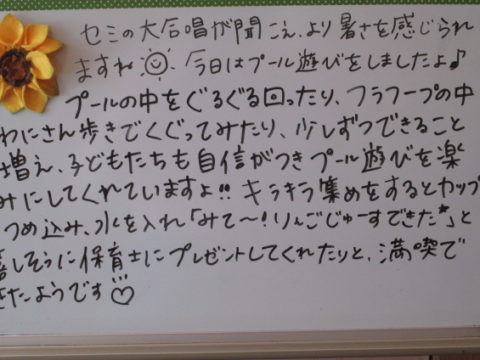 セミの大合唱が聞こえ、より暑さを感じられ
ますね 今日はプール遊びをしましたよ♪
プールの中をぐるぐる回ったり、フラフープの中
わにさん歩きでくぐってみたり、少しずつできること
増え、子どもたちも自信がつきプール遊びを楽
みにしてくれていますよ!! キラキラ集めをするとカップ
つめ込み、水を入れ「みて〜!りんごじゅーすできた」と
嬉しそうに保育士にプレゼントしてくれたりと、満喫で
きたようです♡